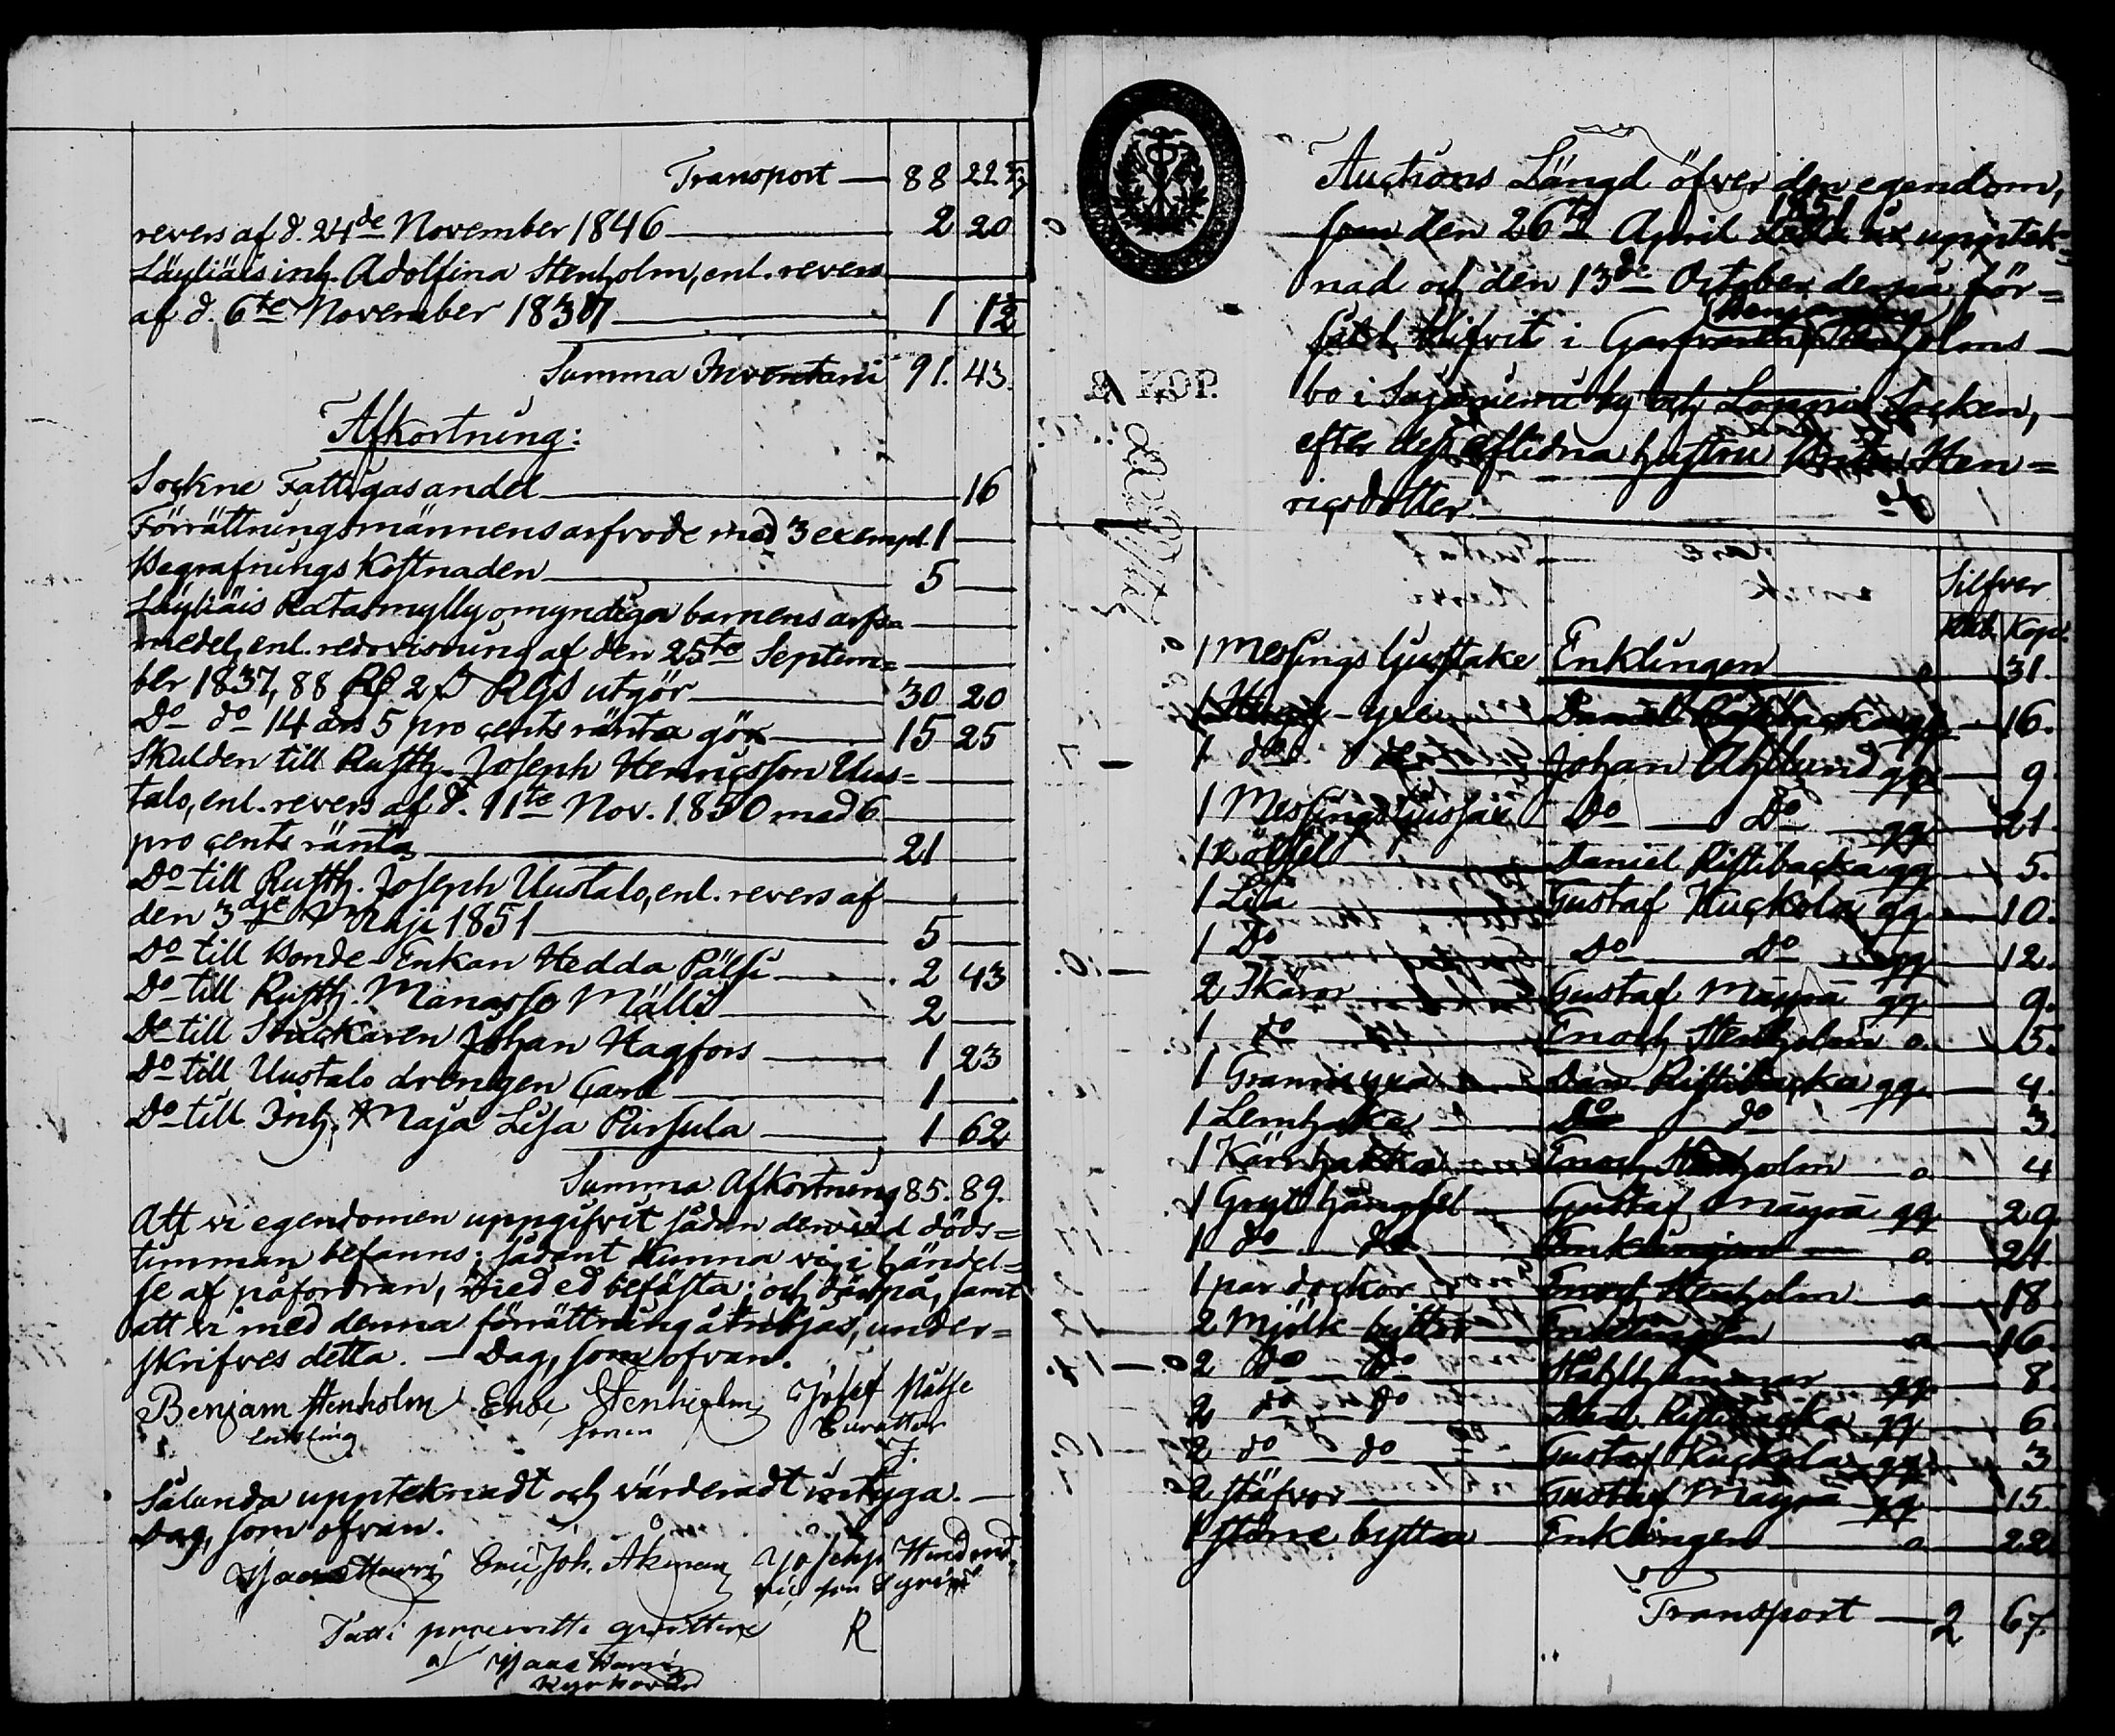 Transport — 88 22 5/7
revers af d. 24de November 1846 — 2 20
Läyliäis inh. Adolfina Stenholm, enl. revers
af d. 6te November 1837 — 1
Summa Inventarii 91. 43.
Afkortning:
Sockne Fattigas andel — 16
Förrättningsmännens arfvode med 3 exempl. 1 —
Begrafnings Kostnaden — 5 —
Läyliäis Ratasmylly omyndiga barnens arfs=
medel, enl. redovisning af den 25te Septem=
ber 1837, 88 R 2 Rgs utgör — 30 20
Do do 14 års 5 pro cents ränta gör — 15 25
Skulden till Rusth. Joseph Henricsson Uus=
talo, enl. revers af d. 11te Nov. 1850 med 6
pro cents ränta — 21
Do till Rusth. Joseph Uustalo, enl. revers af
den 3dje Maji 1851 — 5 —
Do till Bonde-Enkan Hedda Pälsi — 2 43
Do till Rusth. Manasse Mälli — 2 —
Do till Stuckaren Johan Hagfors — 1 23
Do till Uustalo drengen Carl — 1 —
Do till Inh. Maja Lisa Pirsula — 1 62
Summa Afkortning 85. 89.
Att vi egendomen uppgifvit sådan den vid döds=
timman befanns; sådant kunna vi, i händel=
se af påfordran, med ed befästa; och därpå, samt
att vi med denna förrättning åtnöjas, under=
skrifves detta. — Dag, som ofvan.
Benjam Stenholm Stenholm Josef
Enkling sonen Curattor
Sålunda uppteknadt och värderadt intyga. —
Dag, som ofvan.
Eric Joh. Åkman Joseph
R
Kyrkovärd
Auctions Längd öfver den egendom,
som den 26te April 1851 upptek=
nad och den 13de October derpå för=
såld blifvit i Garfvaren Benjam Stenholms
bo i by och Loppis Socken,
efter dess aflidna hustru Hen=
ricsdotter.
2 KOP.
Silfver
Rub. Kop.
1 Messings ljusstake Enklingen a 31.
1 Hugg-yxe Daniel Ristibacka qq — 16.
1 do do Johan Ahlund qq — 9
1 Messings ljussax Do Do qq — 21
1 Daniel Ristibacka qq — 5.
1 Lija Gustaf Kuckola qq — 10.
1 Do Do Do qq — 12.
2 Skäror Gustaf Mäyrä qq — 9.
1 do Enoch Stenholm a. — 5.
1 Dan. Ristibacka qq — 4.
1 Do do 3.
1 Enoch Stenholm a 4
1 Gryt hängsel Gustaf Mäyrä qq 20
1 do do Enklingen a 24.
1 par dockor Enoch Stenholm a 18
2 Mjölk-byttor Enklingen a 16.
2 do do Stählhammar qq 8.
2 do do Dan. Ristibacka qq 6.
2 do do Gustaf Kuckola qq 3
2 stäfvor Gustaf Mäyrä qq 15
1 större bytta Enklingen a 22.
Transport — 2 67.